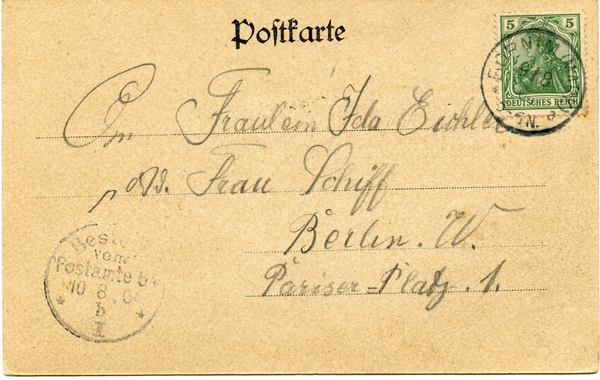 Postkarte
5 5
DEUTSCHES REICH
BORNIM
An Fräulein Ida Eichler
Frau Schiff
Berlin. W.
Pariser-Platz. 1.
Best
vom
Postamte
10 8